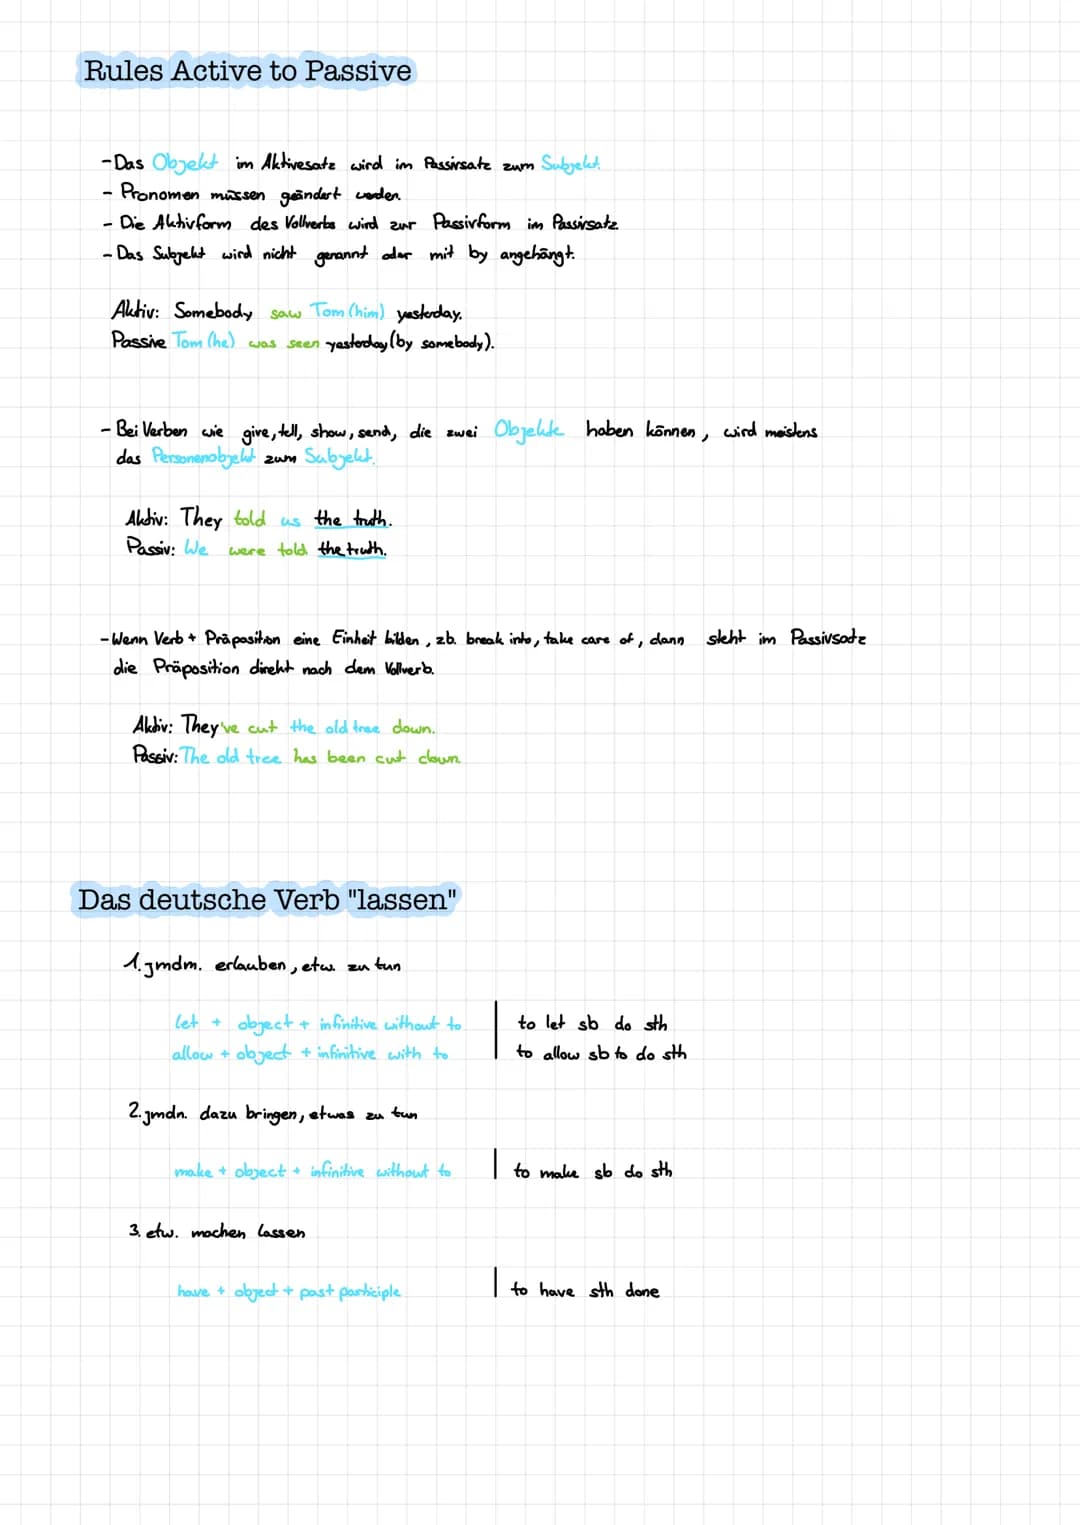 Rules Active to Passive
- Das Objekt im Aktivesatz wird im Passivsatz zum Subjekt.
- Pronomen müssen geändert werden.
- Die Aktivform des Vollverbs wird zur Passivform im Passivsatz
- Das Subjekt wird nicht genannt oder mit by angehängt.
Aktiv: Somebody saw Tom (him) yesterday.
Passive Tom (he) was seen yesterday (by somebody).
- Bei Verben wie give, tell, show, send, die zwei Objekte haben können, wird meistens
das Personenobjekt zum Subjekt.
Aktiv: They told us the truth.
Passiv: We were told the truth.
- Wenn Verb + Präposition eine Einheit bilden, zb. break into, take care of, dann steht im Passivsatz
die Präposition direkt nach dem Vollverb.
Aktiv: They've cut the old tree down.
Passiv: The old tree has been cut down.
Das deutsche Verb "lassen"
1. jmdm. erlauben, etw. zu tun
let + object + infinitive without to | to let sb do sth
allow + object + infinitive with to | to allow sb to do sth
2. jmdn. dazu bringen, etwas zu tun
make + object + infinitive without to | to make sb do sth
3. etw. machen lassen
have + object + past participle | to have sth done